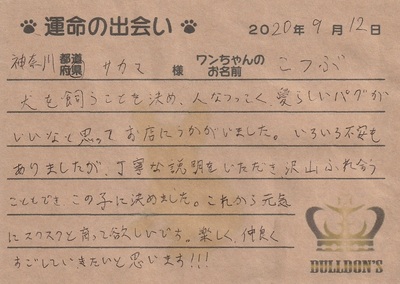 運命の出会い 2020年9月12日
神奈川 都道府県 サカマ 様 ワンちゃんのお名前 こつぶ
犬を飼うことを決め、人なつっこく、愛らしいパグが
いいなと思って、お店にうかがいました。いろいろ不安も
ありましたが、丁寧な説明をいただき、沢山ふれ合う
こともでき この子に決めました。これから元気
にスクスクと育って欲しいです。楽しく、仲良く
すごしていきたいと思います!!!
BULLDON'S